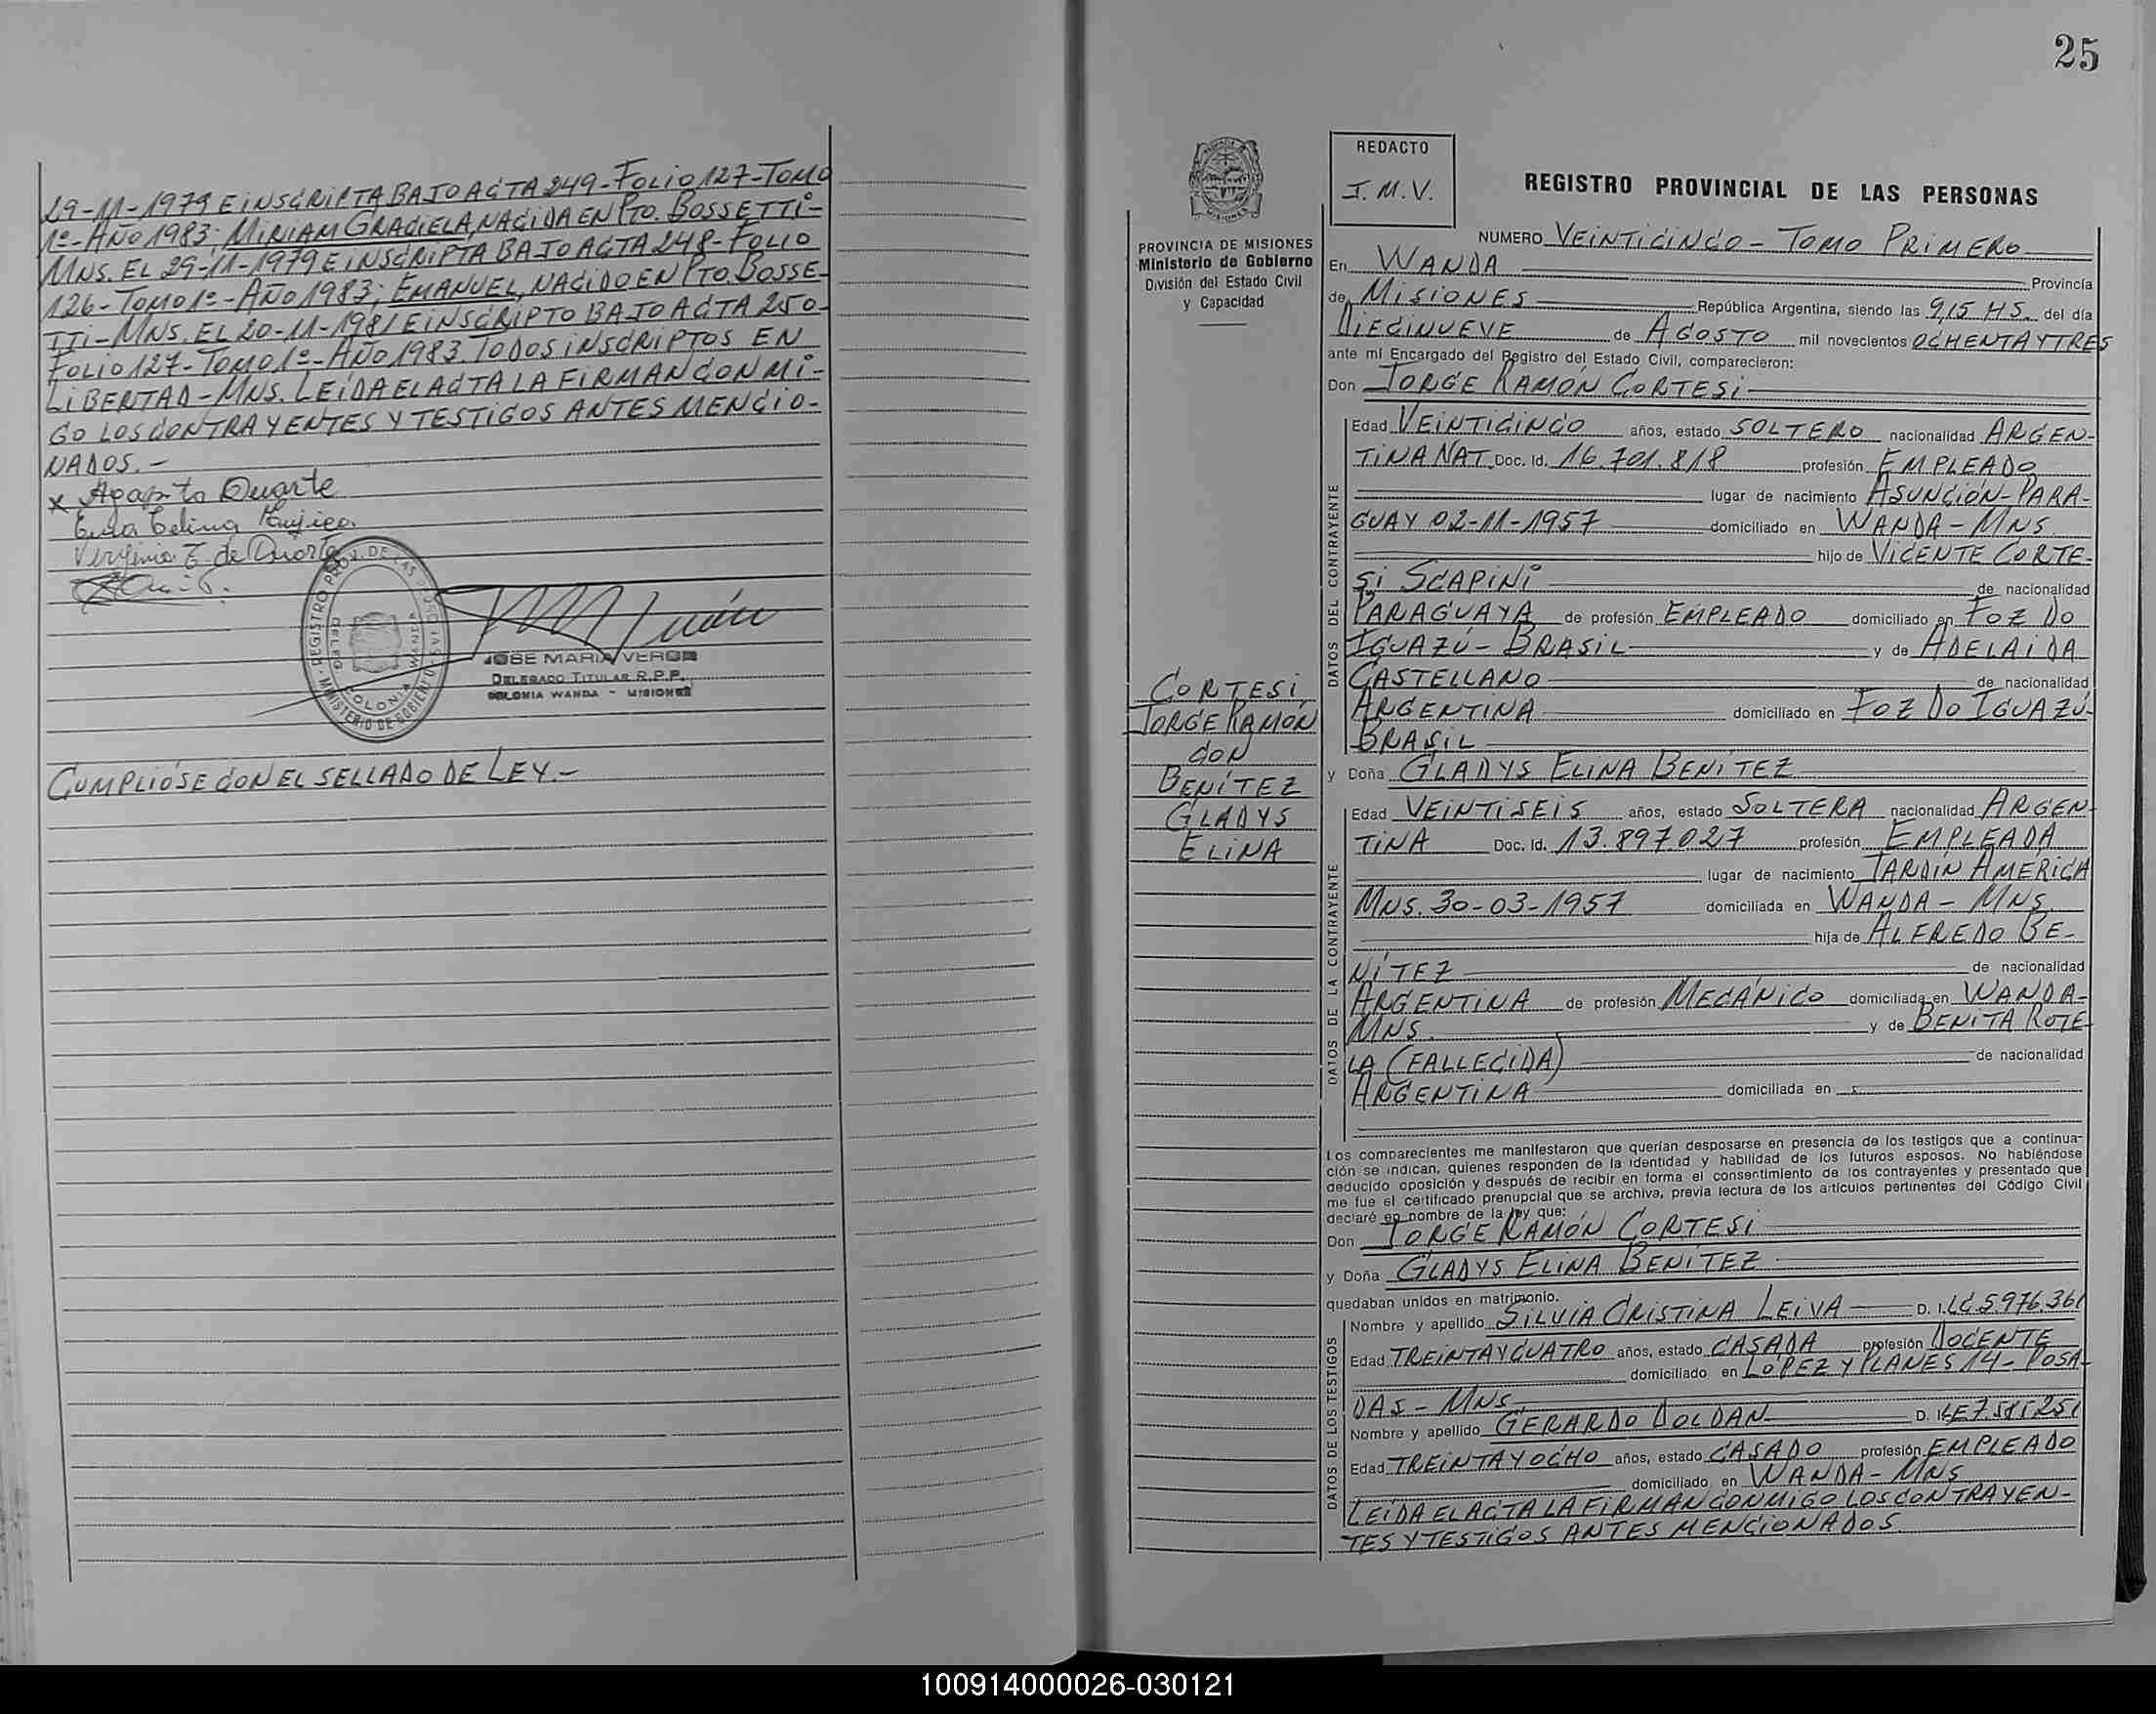 29-11-1979 E INSCRIPTA BAJO ACTA 249-FOLIO 127-TOMO
1º-AÑO 1983; MIRIAM GRACIELA, NACIDA EN PTO. BOSSETTI-
MNS. EL 29-11-1979 E INSCRIPTA BAJO ACTA 248-FOLIO
126-TOMO 1º-AÑO 1983; EMANUEL, NACIDO EN PTO. BOSSE-
TTI-MNS. EL 20-11-1981 E INSCRIPTO BAJO ACTA 250-
FOLIO 127-TOMO 1º-AÑO 1983. TODOS INSCRIPTOS EN
LIBERTAD-MNS. LEÍDA EL ACTA LA FIRMAN CON MI-
GO LOS CONTRAYENTES Y TESTIGOS ANTES MENCIO-
NADOS.-
x Agapito Duarte
Celina
Verginia E. de Duarte
REGISTRO PROV. DE LAS PERSONAS
DELEG.
COLONIA WANDA
MINISTERIO DE GOBIERNO
JOSE MARIA VERON
DELEGADO TITULAR R.P.P.
COLONIA WANDA - MISIONES
CUMPLIÓSE CON EL SELLADO DE LEY.-
25
PROVINCIA DE MISIONES
Ministerio de Gobierno
División del Estado Civil
y Capacidad
CORTESI
JORGE RAMÓN
CON
BENÍTEZ
GLADYS
ELINA
REDACTO
J.M.V.
REGISTRO PROVINCIAL DE LAS PERSONAS
NUMERO VEINTICINCO - TOMO PRIMERO
En WANDA Provincia
de MISIONES República Argentina, siendo las 9,15 HS. del día
DIECINUEVE de AGOSTO mil novecientos OCHENTA Y TRES
ante mí Encargado del Registro del Estado Civil, comparecieron:
Don JORGE RAMÓN CORTESI
DATOS DEL CONTRAYENTE
Edad VEINTICINCO años, estado SOLTERO nacionalidad ARGEN-
TINA NAT. Doc. Id. 16.701.818 profesión EMPLEADO
lugar de nacimiento ASUNCIÓN-PARA-
GUAY 02-11-1957 domiciliado en WANDA-MNS.
hijo de VICENTE CORTE-
SI SCAPINI de nacionalidad
PARAGUAYA de profesión EMPLEADO domiciliado en FOZ DO
IGUAZÚ-BRASIL y de ADELAIDA
CASTELLANO de nacionalidad
ARGENTINA domiciliado en FOZ DO IGUAZÚ-
BRASIL
y Doña GLADYS ELINA BENÍTEZ
DATOS DE LA CONTRAYENTE
Edad VEINTISEIS años, estado SOLTERA nacionalidad ARGEN-
TINA Doc. Id. 13.897.027 profesión EMPLEADA
lugar de nacimiento JARDÍN AMERICA
MNS. 30-03-1957 domiciliada en WANDA-MNS.
hija de ALFREDO BE-
NÍTEZ de nacionalidad
ARGENTINA de profesión MECÁNICO domiciliada en WANDA-
MNS. y de BENITA ROTE-
LA (FALLECIDA) de nacionalidad
ARGENTINA domiciliada en
Los comparecientes me manifestaron que querían desposarse en presencia de los testigos que a continua-
ción se indican, quienes responden de la identidad y habilidad de los futuros esposos. No habiéndose
deducido oposición y después de recibir en forma el consentimiento de los contrayentes y presentado que
me fue el certificado prenupcial que se archiva, previa lectura de los artículos pertinentes del Código Civil
declaré en nombre de la ley que:
Don JORGE RAMÓN CORTESI
y Doña GLADYS ELINA BENÍTEZ
quedaban unidos en matrimonio.
DATOS DE LOS TESTIGOS
Nombre y apellido SILVIA CRISTINA LEIVA D. I. LC 5.976.361
Edad TREINTA Y CUATRO años, estado CASADA profesión DOCENTE
domiciliado en LOPEZ Y PLANES 14-POSA-
DAS-MNS
Nombre y apellido GERARDO DOLDAN D. I. LE 7.585.251
Edad TREINTA Y OCHO años, estado CASADO profesión EMPLEADO
domiciliado en WANDA-MNS
LEÍDA EL ACTA LA FIRMAN CONMIGO LOS CONTRAYEN-
TES Y TESTIGOS ANTES MENCIONADOS.
100914000026-030121